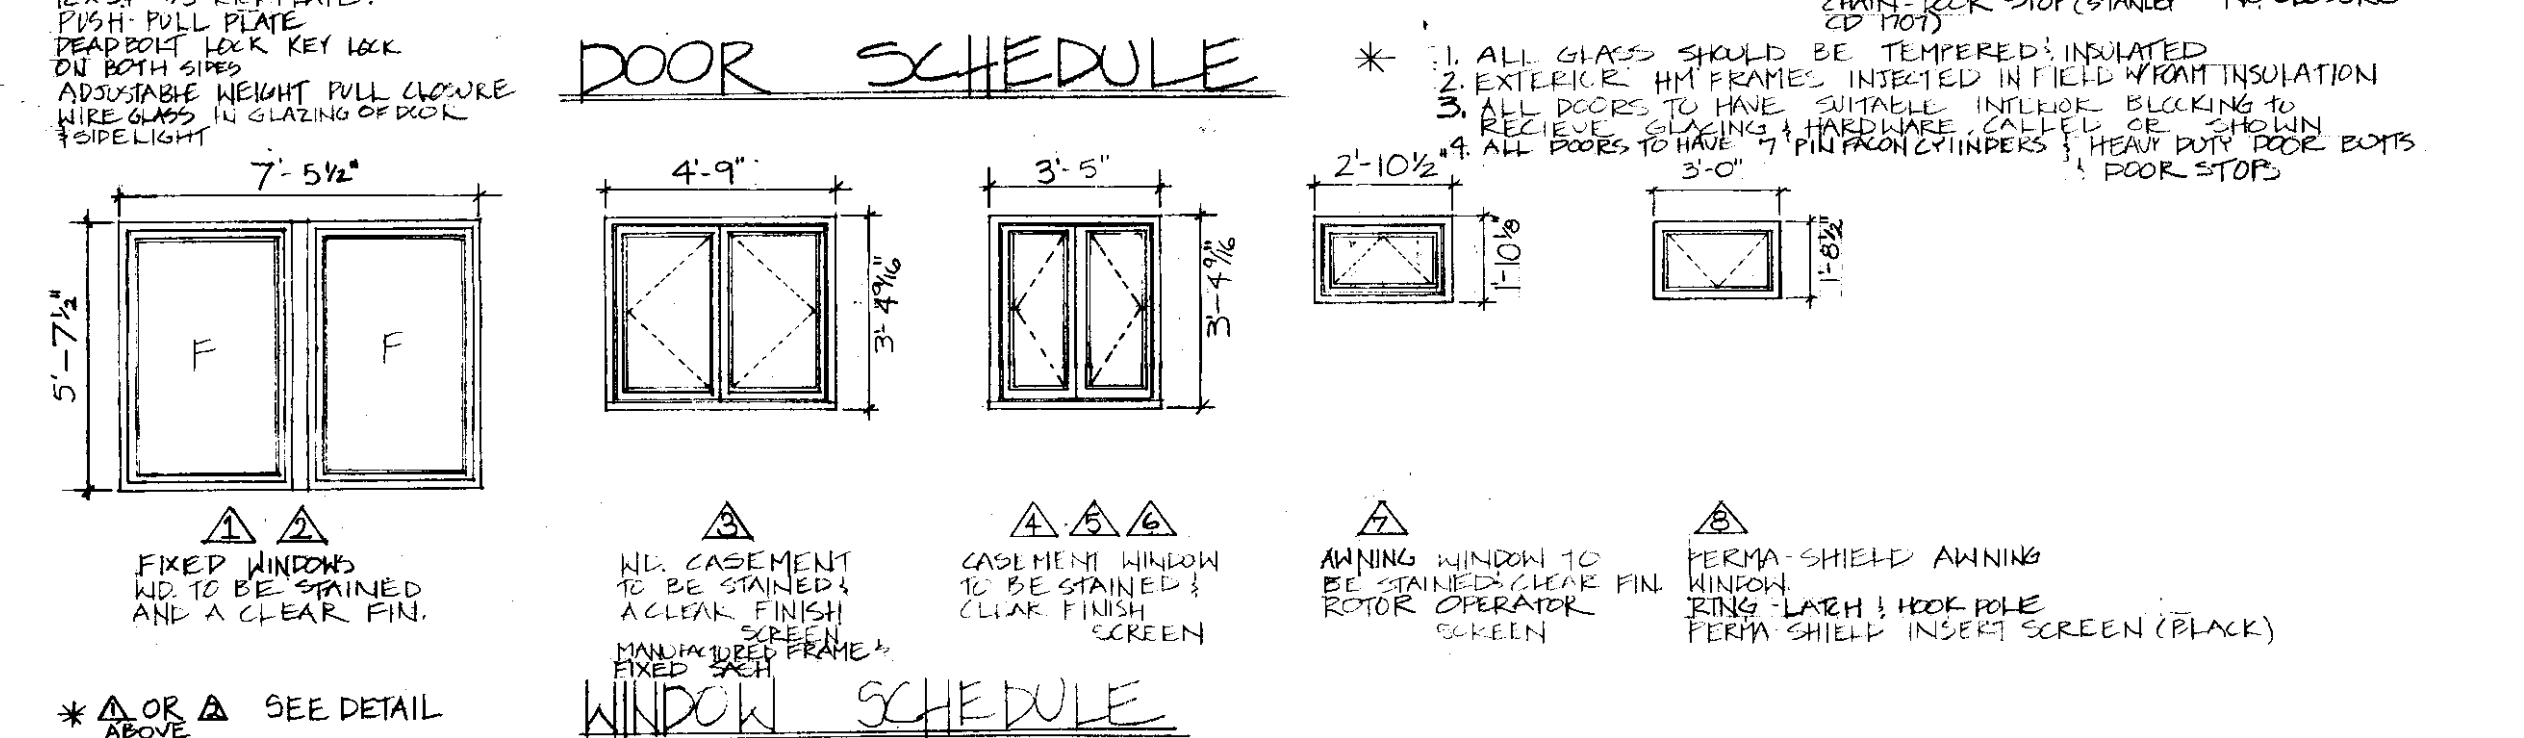 PUSH-PULL PLATE
DEADBOLT LOCK KEY LOCK
ON BOTH SIDES
ADJUSTABLE WEIGHT PULL CLOSURE
WIRE GLASS IN GLAZING OF DOOR
& SIDELIGHT
DOOR SCHEDULE
CHAIN-DOOR STOP (STANLEY
CD 1707)
* 1. ALL GLASS SHOULD BE TEMPERED & INSULATED
2. EXTERIOR HM FRAMES INJECTED IN FIELD W/FOAM INSULATION
3. ALL DOORS TO HAVE SUITABLE INTERIOR BLOCKING to
RECIEVE GLAZING & HARDWARE CALLED OR SHOWN
4. ALL DOORS TO HAVE 7 PIN FACON CYLINDERS & HEAVY DUTY DOOR BUTTS
& DOOR STOPS
7'-5 1/2"
4'-9"
3'-5"
2'-10 1/2"
3'-0"
5'-7 1/2"
F
F
3'-4 9/16"
3'-4 9/16"
1'-10 1/8"
1'-8 1/2"
1 2
FIXED WINDOWS
WD. TO BE STAINED
AND A CLEAR FIN.
3
WD. CASEMENT
TO BE STAINED &
A CLEAR FINISH
SCREEN
MANUFACTURED FRAME &
FIXED SACH
4 5 6
CASEMENT WINDOW
TO BE STAINED &
CLEAR FINISH
SCREEN
7
AWNING WINDOW TO
BE STAINED & CLEAR FIN.
ROTOR OPERATOR
SCREEN
8
PERMA-SHIELD AWNING
WINDOW.
RING-LATCH & HOOK POLE
PERMA-SHIELD INSERT SCREEN (BLACK)
* 1 OR 2 SEE DETAIL
ABOVE
WINDOW SCHEDULE